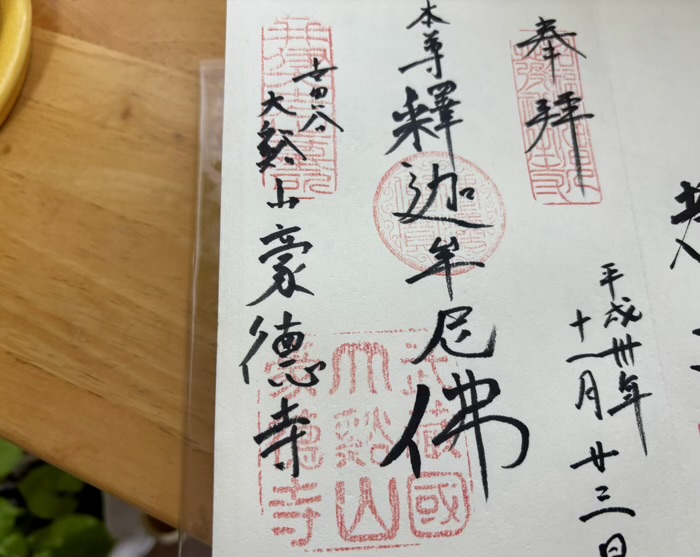 奉拝
平成卅年
十一月廿三日
本尊釋迦牟尼佛
世田谷
大谿山豪德寺
武蔵國
大谿山
豪德寺